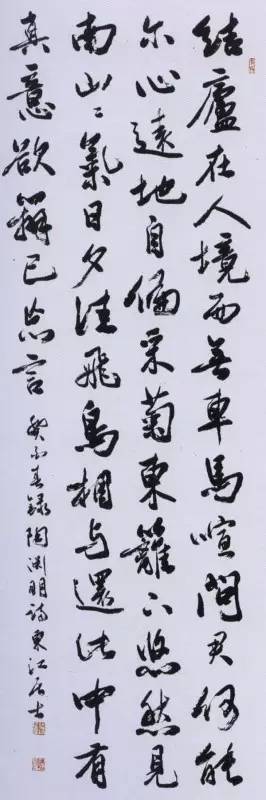 結廬在人境而無車馬喧問君何能
尔心遠地自偏采菊東籬下悠然見
南山〻氣日夕佳飛鳥相与還此中有
真意欲辨已忘言 癸春録陶渊明詩東江居士